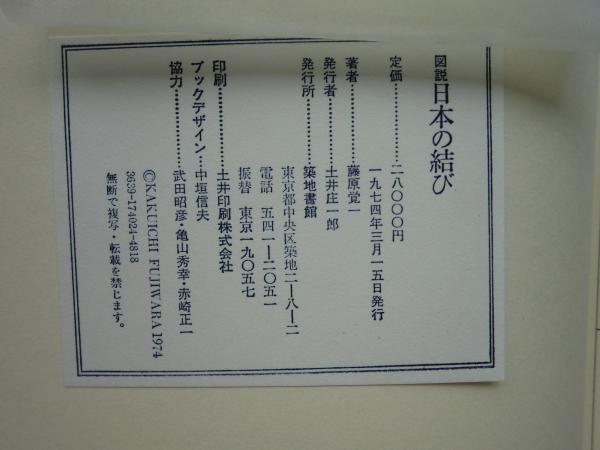 図説 日本の結び
定価………………二八〇〇〇円
一九七四年三月一五日発行
著者………………藤原覚一
発行者……………土井庄一郎
発行所……………築地書館
東京都中央区築地二ー八ー二
電話 五四一ー二〇五一
振替 東京一九〇五七
印刷………………土井印刷株式会社
ブックデザイン…中垣信夫
協力………………武田昭彦・亀山秀幸・赤崎正一
©KAKUICHI FUJIWARA 1974
3639-174024-4818
無断で複写・転載を禁じます。